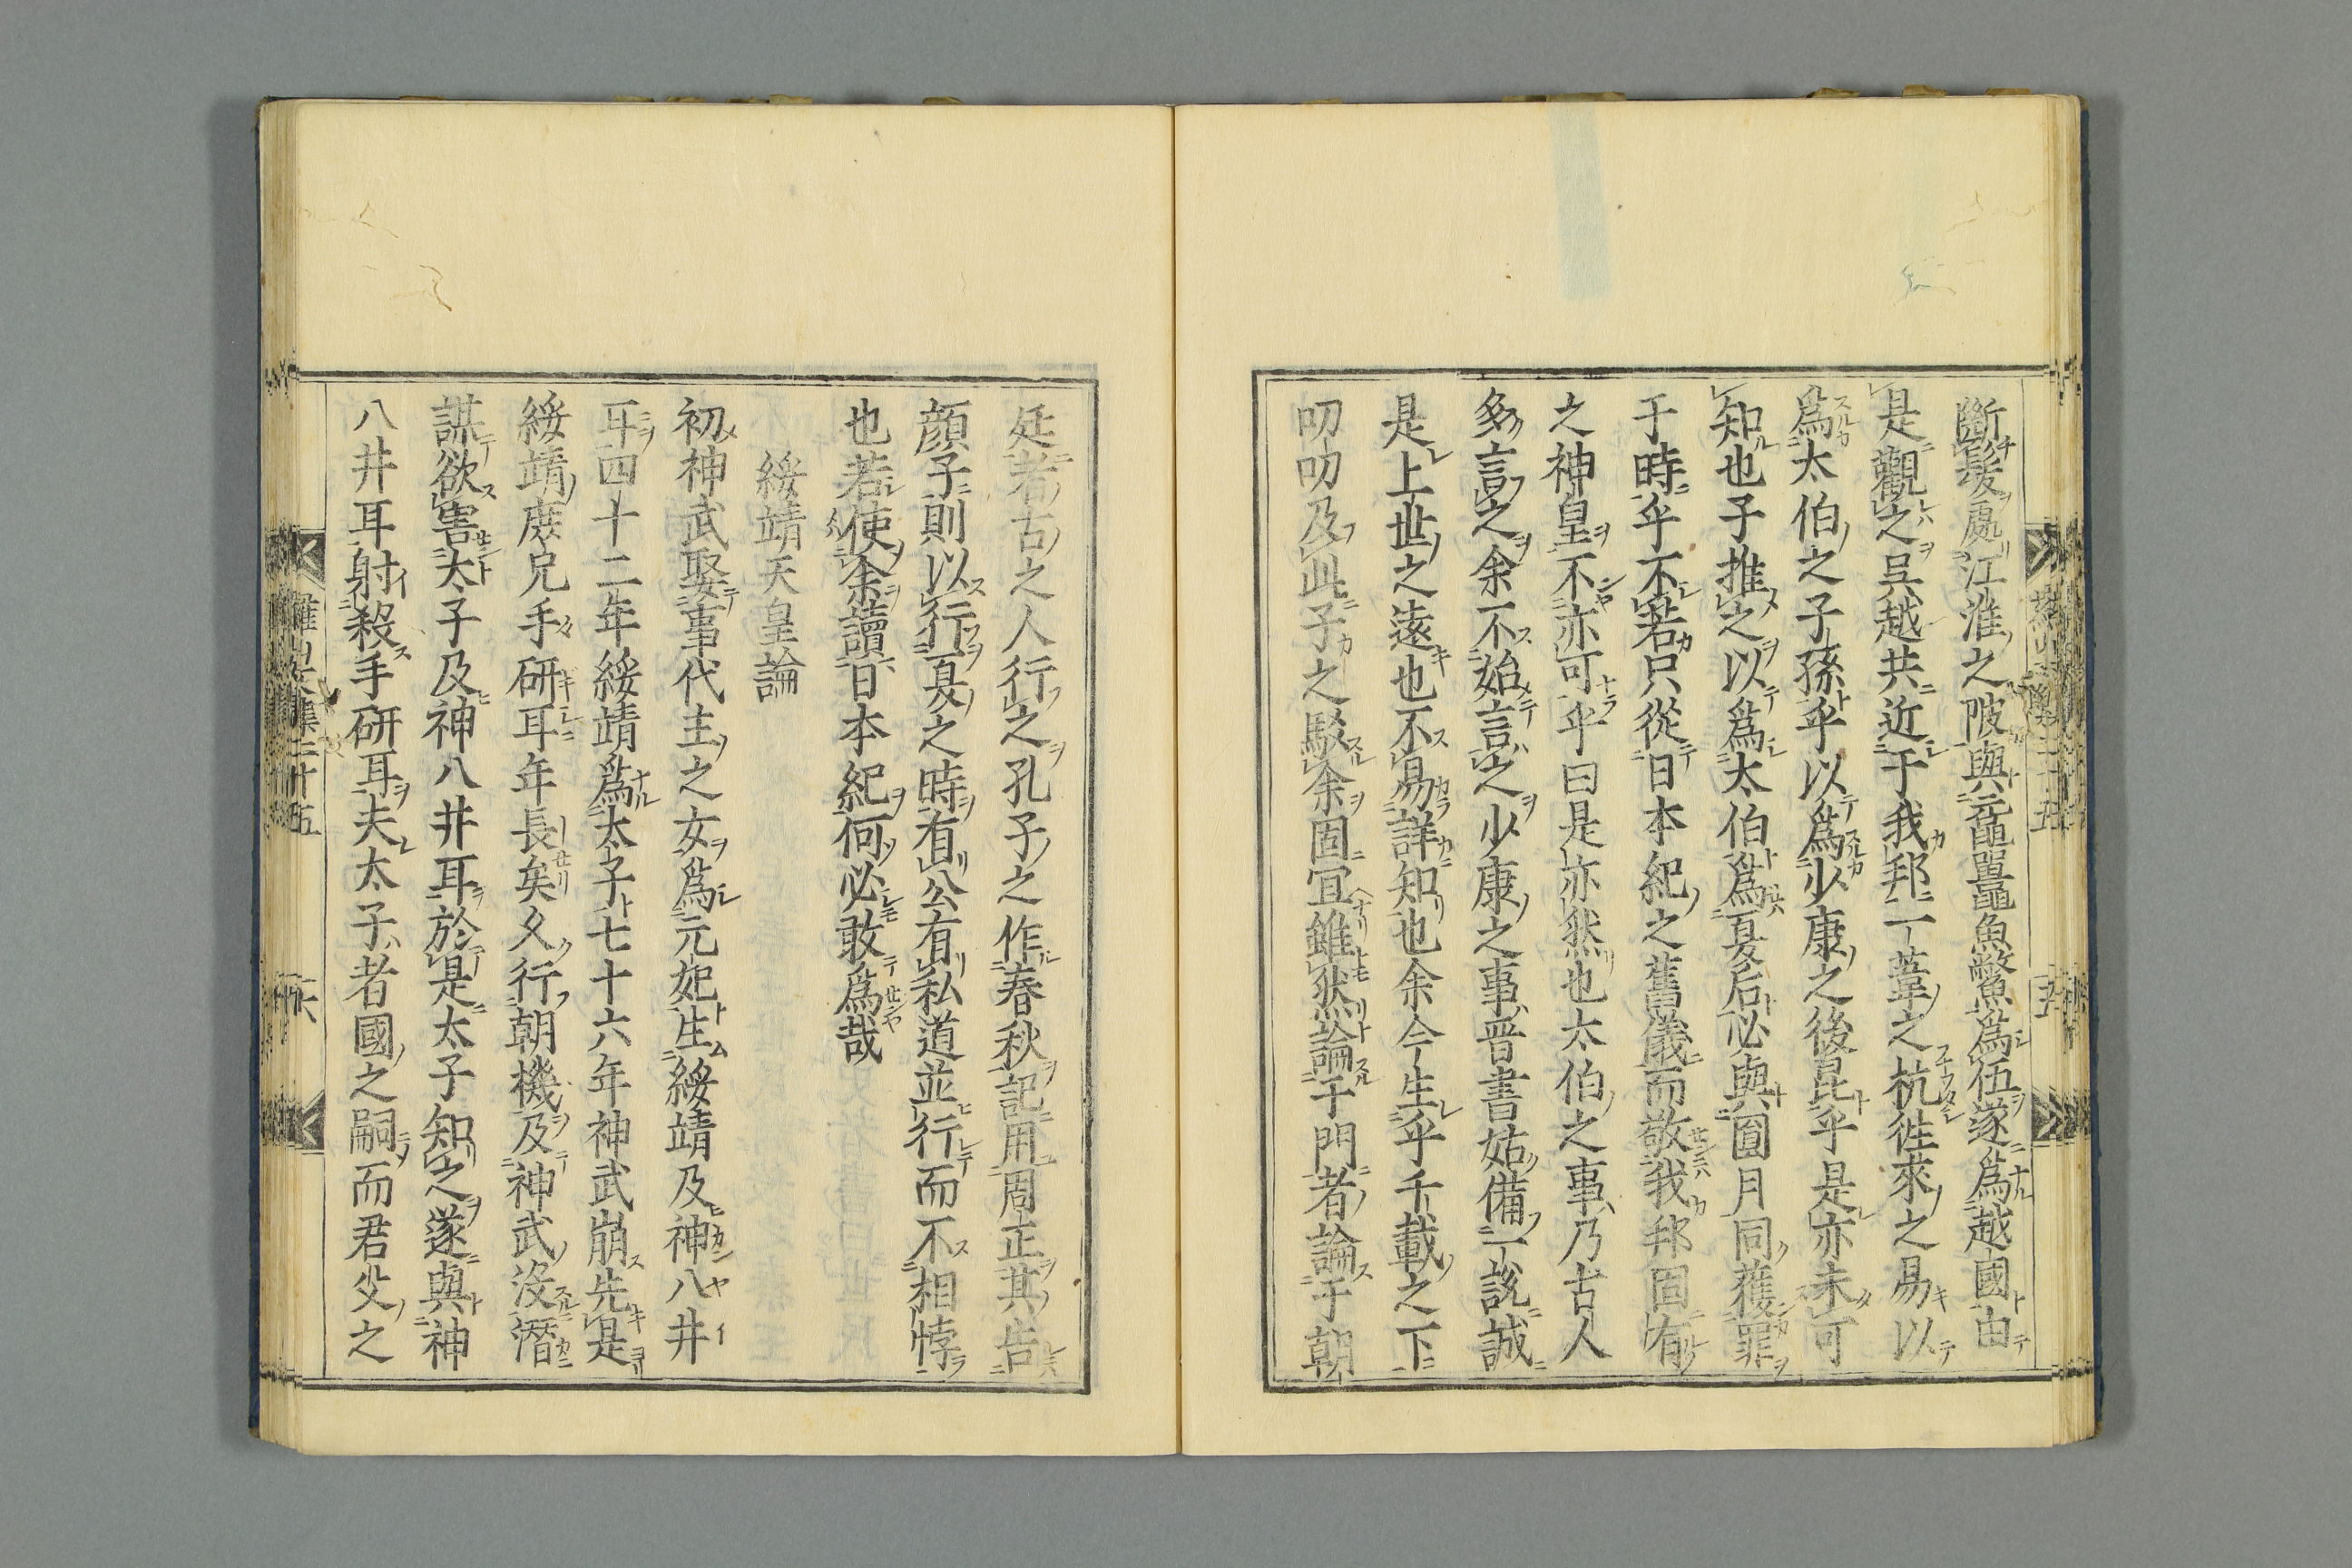 斷髮處江淮之陂與黿鼉魚鱉爲伍遂爲越國由
是觀之吳越共近于我邦一葦之杭徃來之易以
爲太伯之子孫乎以爲少康之後昆乎是亦未可
知也子推之以爲太伯爲夏后必與圓月同獲罪
于時乎不若只從日本紀之舊儀而敬我邦固有
之神皇不亦可乎曰是亦然也太伯之事乃古人
多言之余不始言之少康之事晋書姑備一說誠
是上世之遠也不易詳知也余今生乎千載之下
叨叨及此子之駁余固宜雖然論于門者論于朝
廷若古之人行之孔子之作春秋記用周正其告
顔子則以行夏之時有公有私道並行而不相悖
也若使余讀日本紀何必敢爲哉
綏靖天皇論
初神武娶事代主之女爲元妃生綏靖及神八井
耳四十二年綏靖爲太子七十六年神武崩先是
綏靖庶兄手研耳年長矣久行朝機及神武沒潛
謀欲害太子及神八井耳於是太子知之遂與神
八井耳射殺手研耳夫太子者國之嗣而君父之
羅山文集二十五
十六